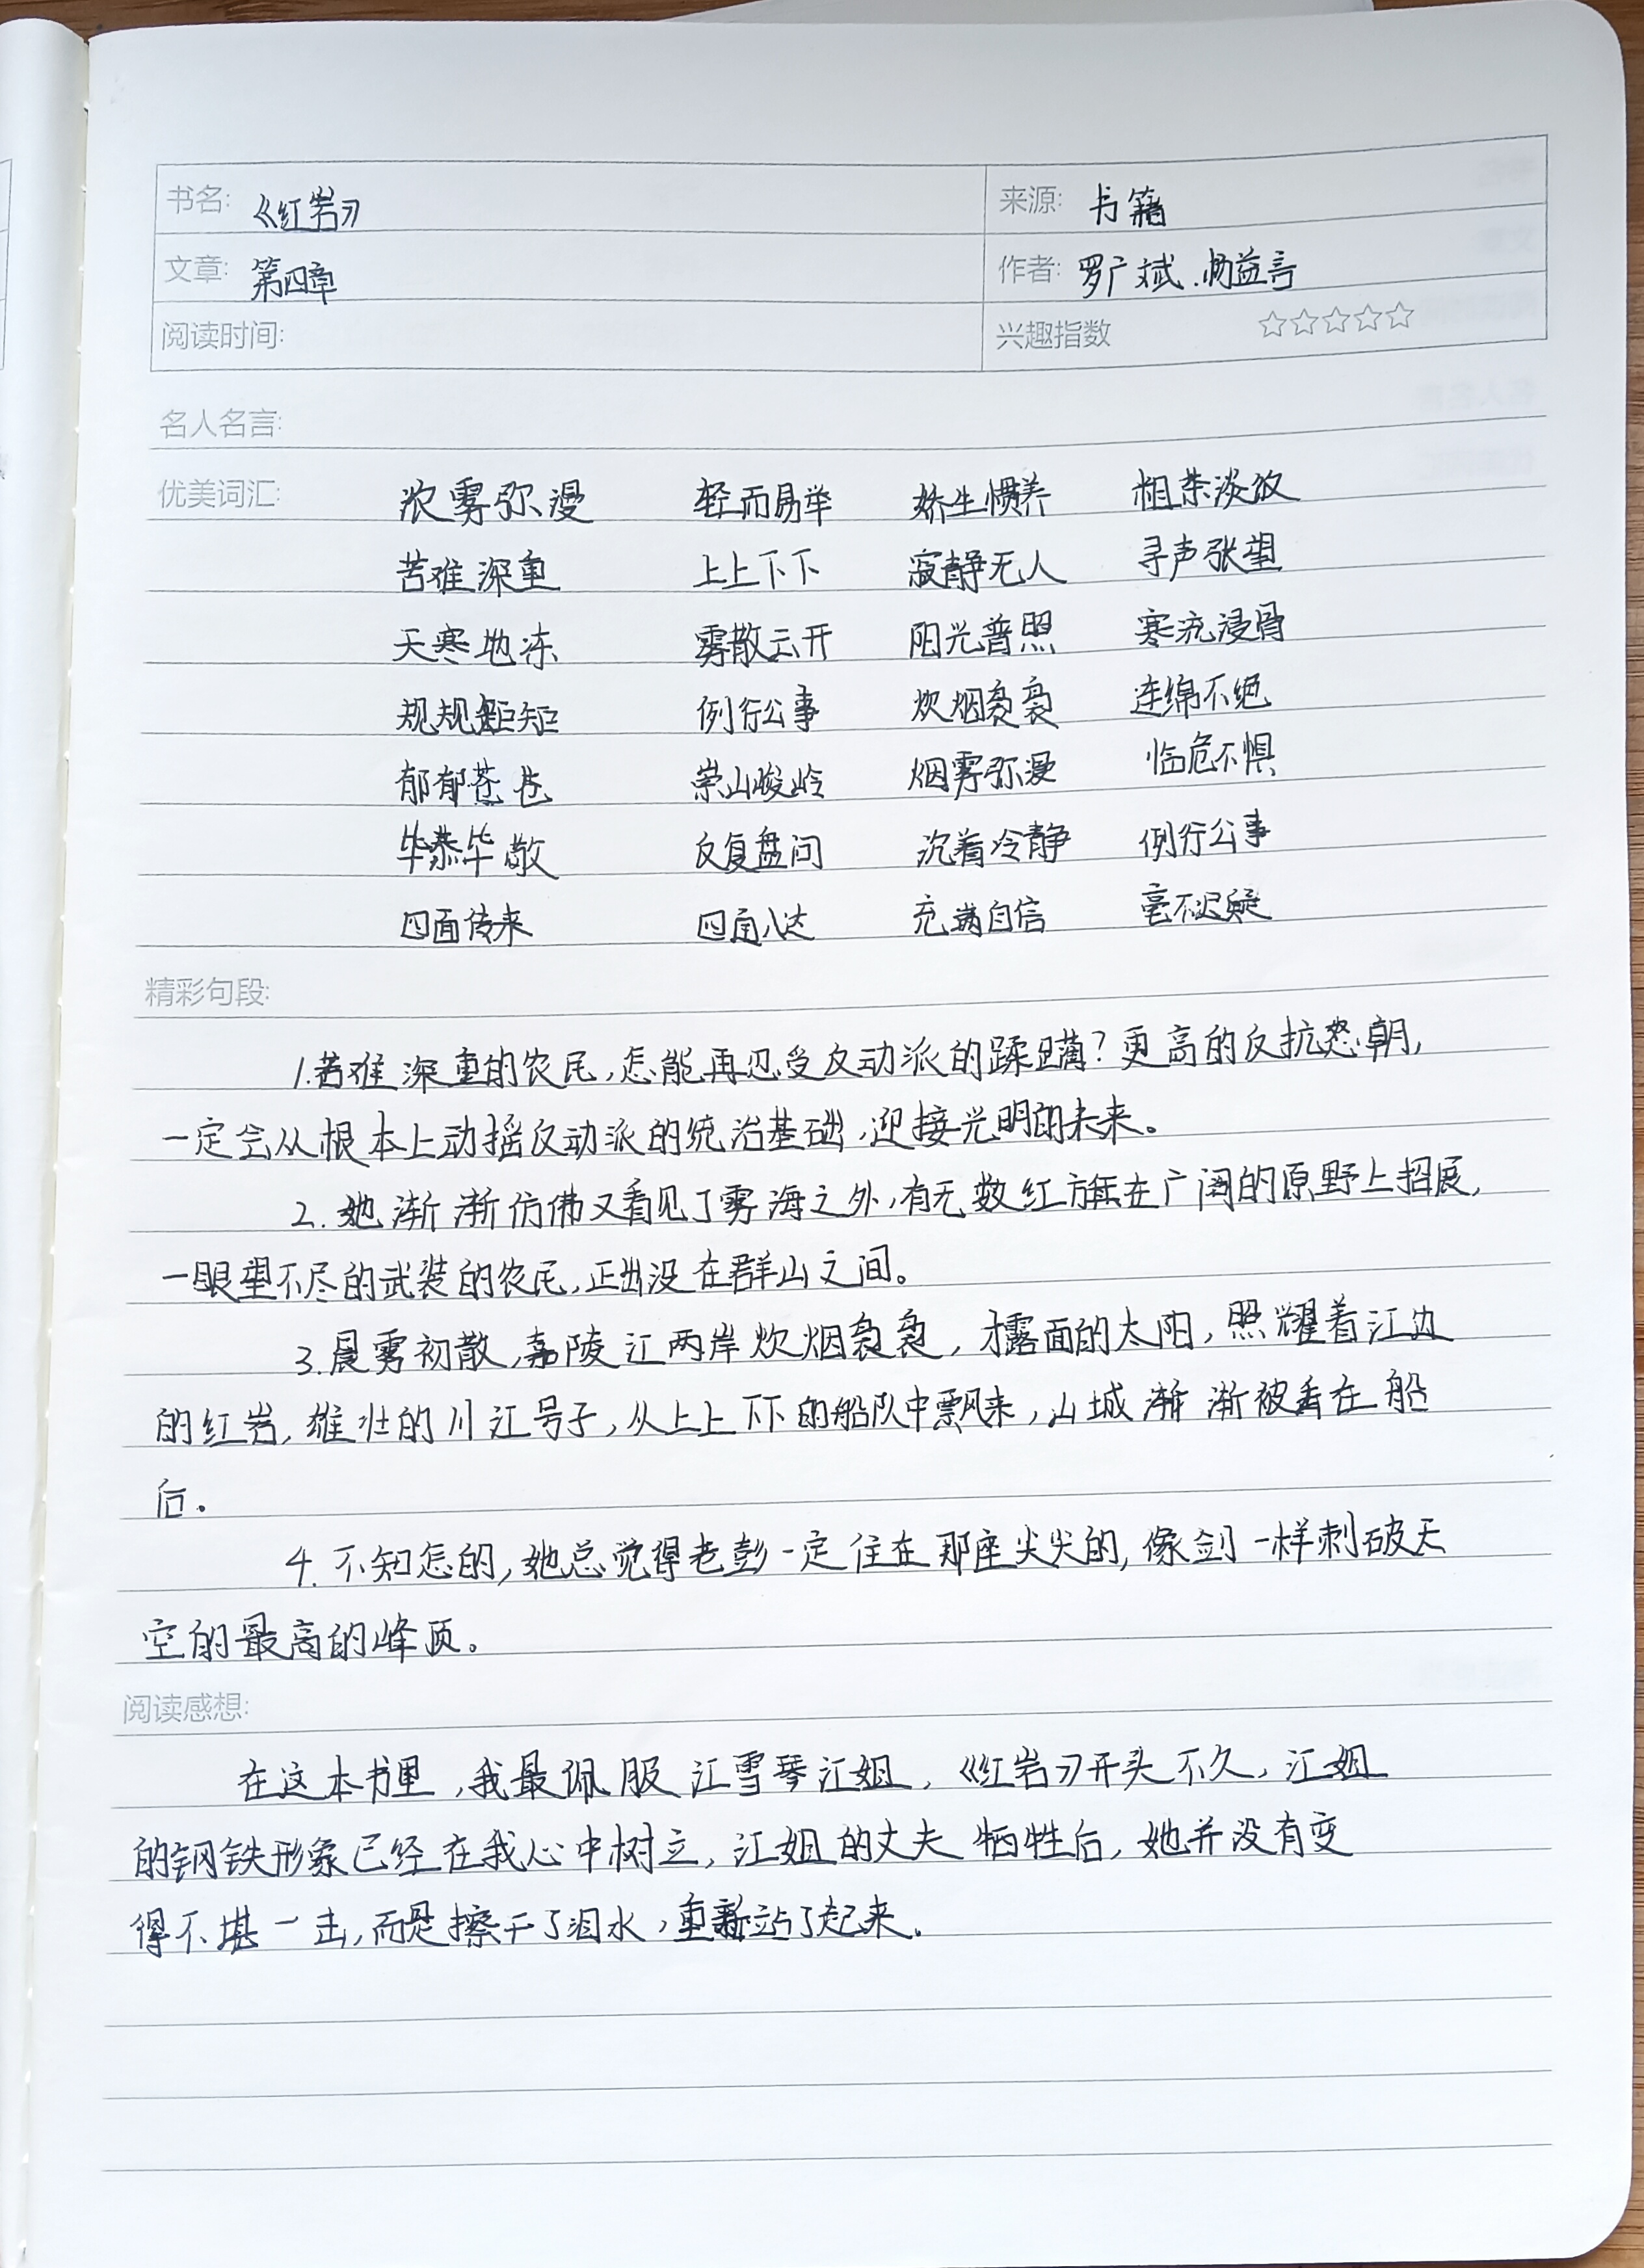 书名: 《红岩》 来源: 书籍
文章: 第四章 作者: 罗广斌.杨益言
阅读时间: 兴趣指数 ☆☆☆☆☆
名人名言:
优美词汇: 浓雾弥漫 轻而易举 娇生惯养 粗茶淡饭
苦难深重 上上下下 寂静无人 寻声张望
天寒地冻 雾散云开 阳光普照 寒流浸骨
规规矩矩 例行公事 炊烟袅袅 连绵不绝
郁郁苍苍 崇山峻岭 烟雾弥漫 临危不惧
毕恭毕敬 反复盘问 沉着冷静 例行公事
四面传来 四面八达 充满自信 毫不迟疑
精彩句段:
1.苦难深重的农民,怎能再忍受反动派的蹂躏?更高的反抗怒朝,
一定会从根本上动摇反动派的统治基础,迎接光明的未来。
2.她渐渐仿佛又看见了雾海之外,有无数红旗在广阔的原野上招展,
一眼望不尽的武装的农民,正出没在群山之间。
3.晨雾初散,嘉陵江两岸炊烟袅袅,才露面的太阳,照耀着江边
的红岩,雄壮的川江号子,从上上下下的船队中飘来,山城渐渐被丢在船
后.
4.不知怎的,她总觉得老彭一定住在那座尖尖的,像剑一样刺破天
空的最高的峰顶。
阅读感想:
在这本书里,我最佩服江雪琴江姐,《红岩》开头不久,江姐
的钢铁形象已经在我心中树立,江姐的丈夫牺牲后,她并没有变
得不堪一击,而是擦干了泪水,重新站了起来.